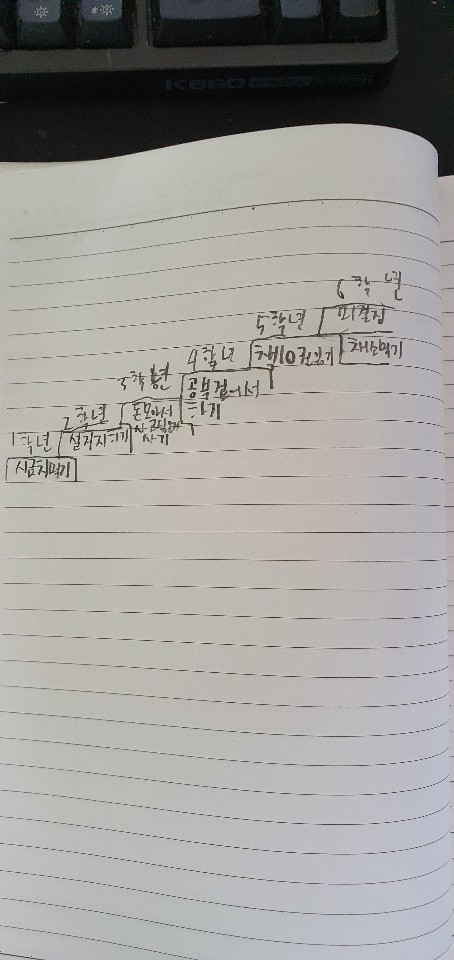 K660
6학년
5학년
피겔집
4학년
책10권읽기
채소먹기
3학년
공부겔에서
하기
2학년
돈모아서
사기
1학년
설거지하기
시금치먹기